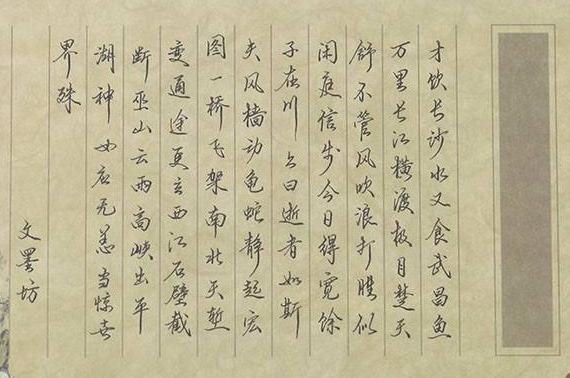 才饮长沙水又食武昌鱼
万里长江横渡极目楚天
舒不管风吹浪打胜似
闲庭信步今日得宽馀
子在川上曰逝者如斯
夫风樯动龟蛇静起宏
图一桥飞架南北天堑
变通途更立西江石壁截
断巫山云雨高峡出平
湖神女应无恙当惊世
界殊
文墨坊